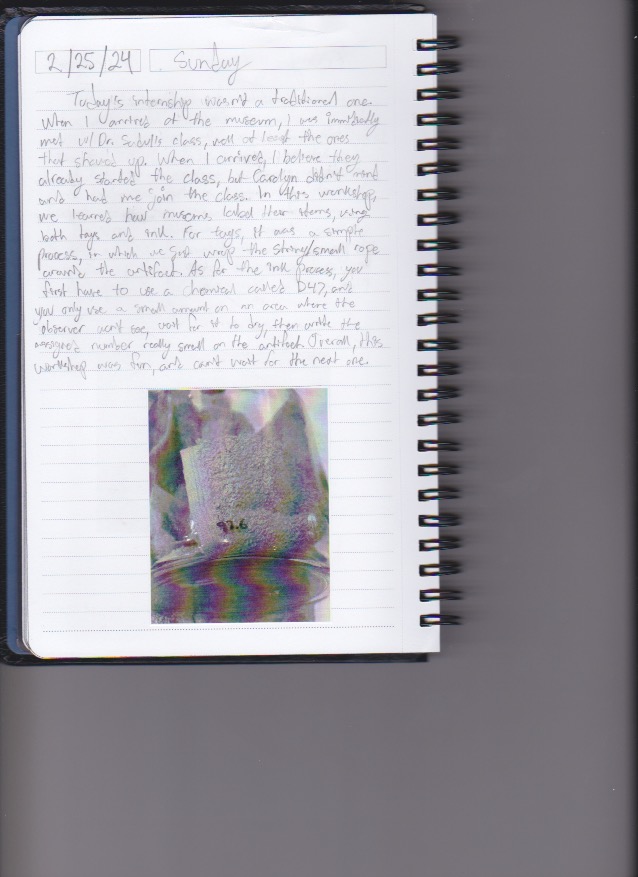 2/25/24 Sunday
Today's internship wasn't a traditional one.
When I arrived at the museum, I was immediately
met w/ Dr. class, well at least the ones
that showed up. When I arrived, I believe they
already started the class, but Carolyn didn't mind
and had me join the class. In this workshop,
we learned how museums label their items, using
both tags and ink. For tags, it was a simple
process, in which we just wrap the string/small rope
around the artifact. As for the ink process, you
first have to use a chemical called and
you only use a small amount on an area where the
observer won't see, wait for it to dry, then write the
assigned number really small on the artifact. Overall, this
workshop was fun, and can't wait for the next one.
97.6